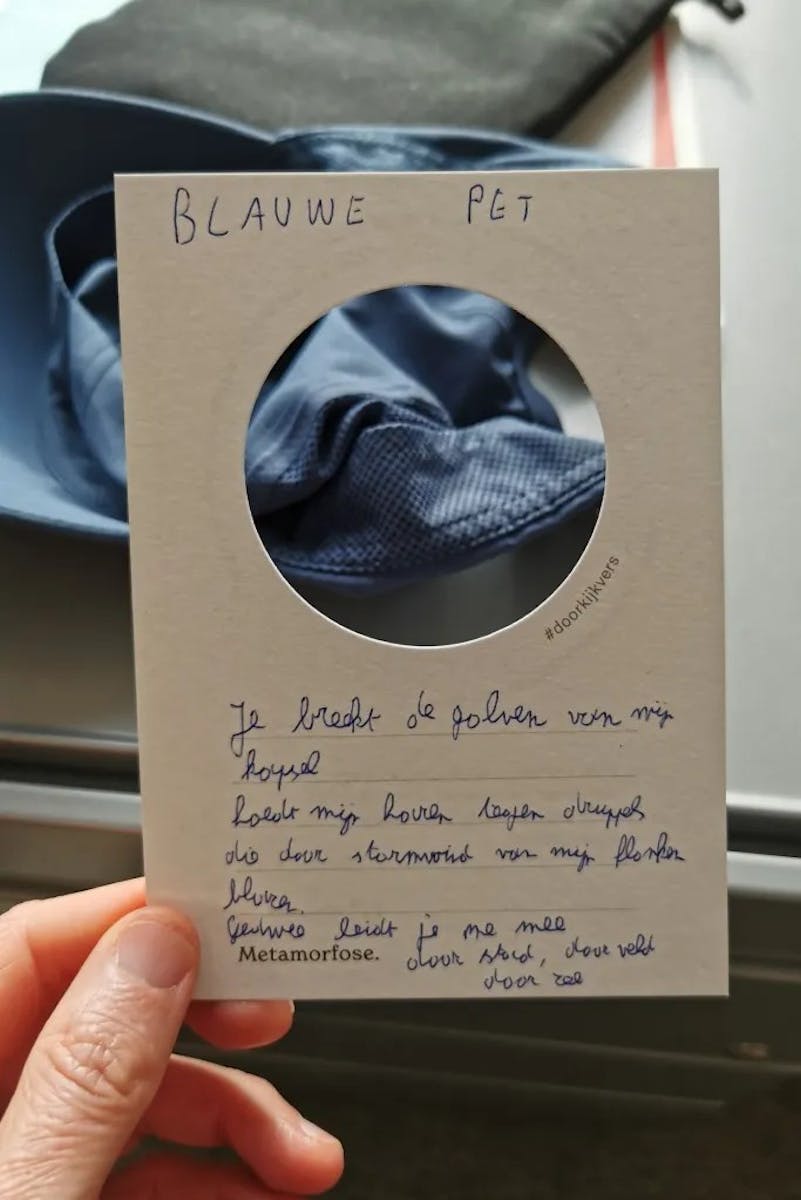 BLAUWE PET
#doorkijkvers
Je breekt de golven van mijn
kapsel
hoedt mijn haren tegen druppels
die door stormwind van mijn flanken
blazen.
Gedwee leidt je me mee
Metamorfose. door stad, door veld
door zee